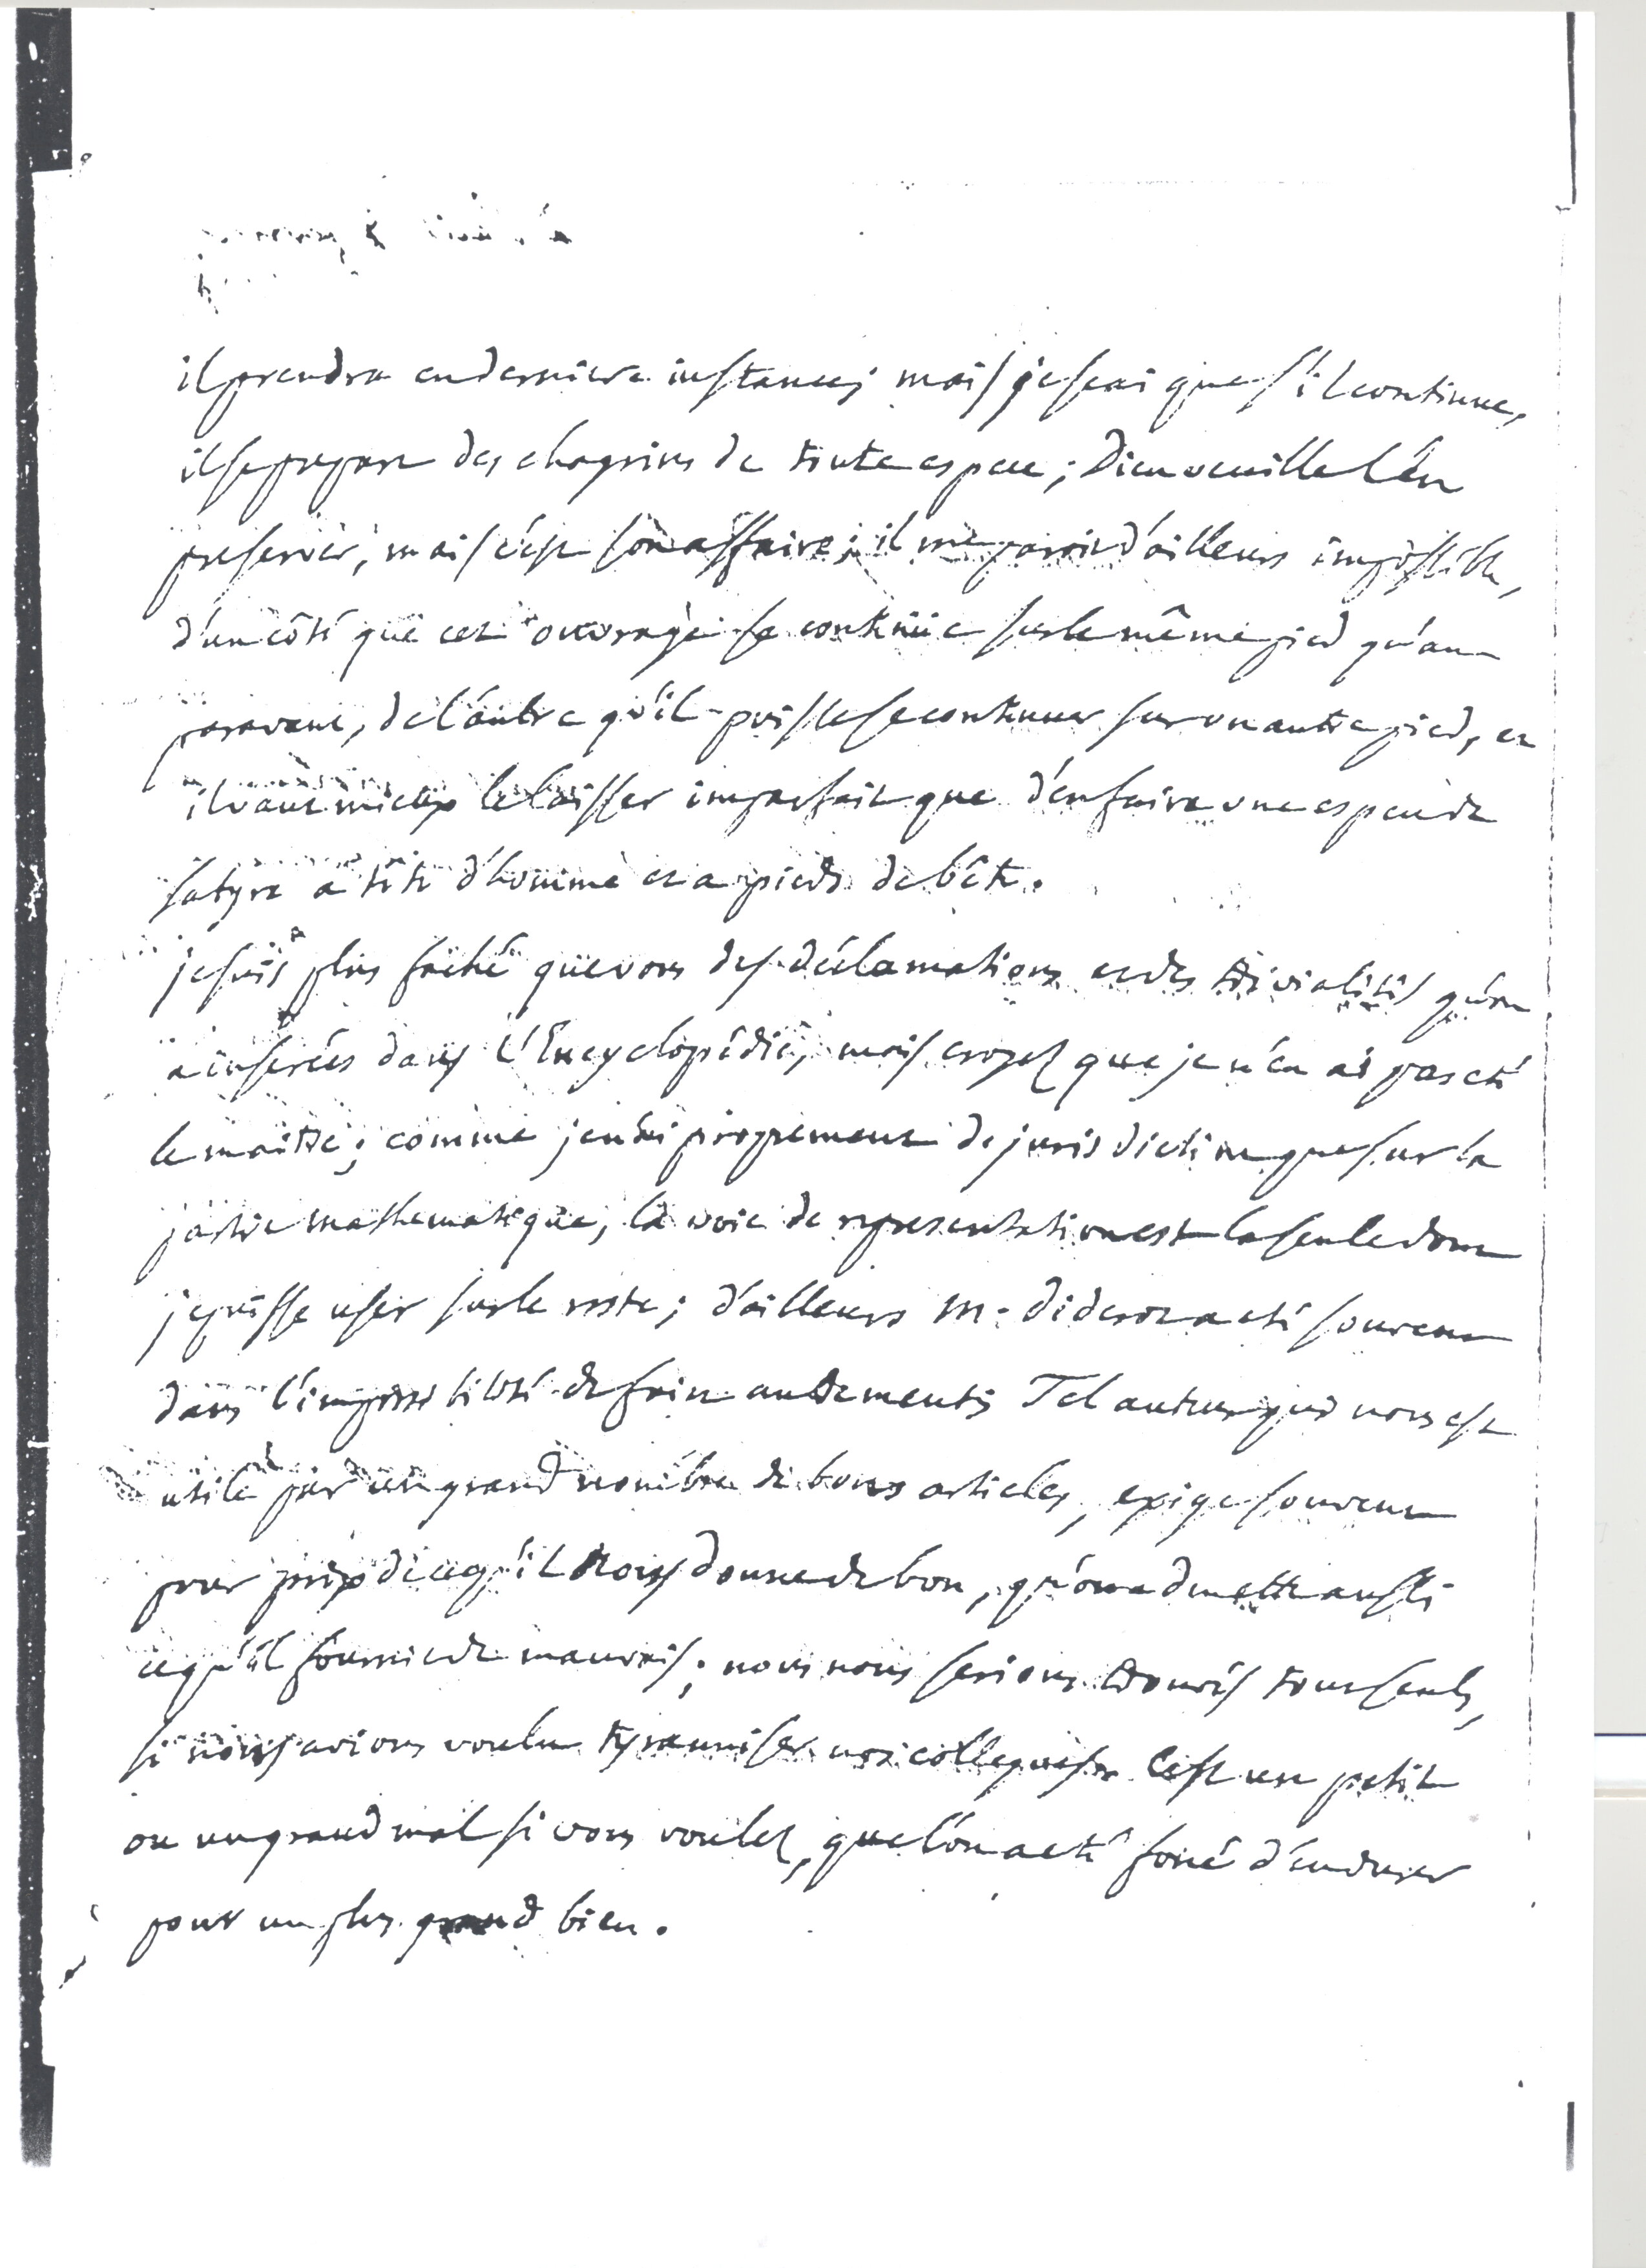 il prendra en derniere instance; mais je scai que s'il continue,
il se prepare des chagrins de toute espece; Dieu veuille l'en
preserver, mais c'est son affaire; il me paroit d'ailleurs impossible,
d'un côté que cet ouvrage se continüe sur le même pied qu'au-
paravant, de l'autre qu'il puisse se continuer sur un autre pied, et
il vaut mieux le laisser imparfait que d'en faire une espece de
satyre a tête d'homme et a pieds de bête.
je suis plus faché que vous des déclamations et des trivialités qu'on
a inserées dans l'Encyclopédie, mais croyez que je n'en ai pas eté
le maitre; comme je n'ai proprement de jurisdiction que sur la
partie mathematique, la voie de representation est la seule dont
je puisse user sur le reste; d'ailleurs m. diderot a eté souvent
dans l'impossibilité de faire autrement. Tel auteur qui nous est
utile par un grand nombre de bons articles, exige souvent
pour prix de ce qu'il nous donne de bon, qu'on admette aussi
ce qu'il fournit de mauvais; nous nous serions trouvés tout seuls,
si nous avions voulu tyranniser nos collegues. C'est un petit
ou un grand mal si vous voulez, que l'on a eté forcé d'endurer
pour un plus grand bien.